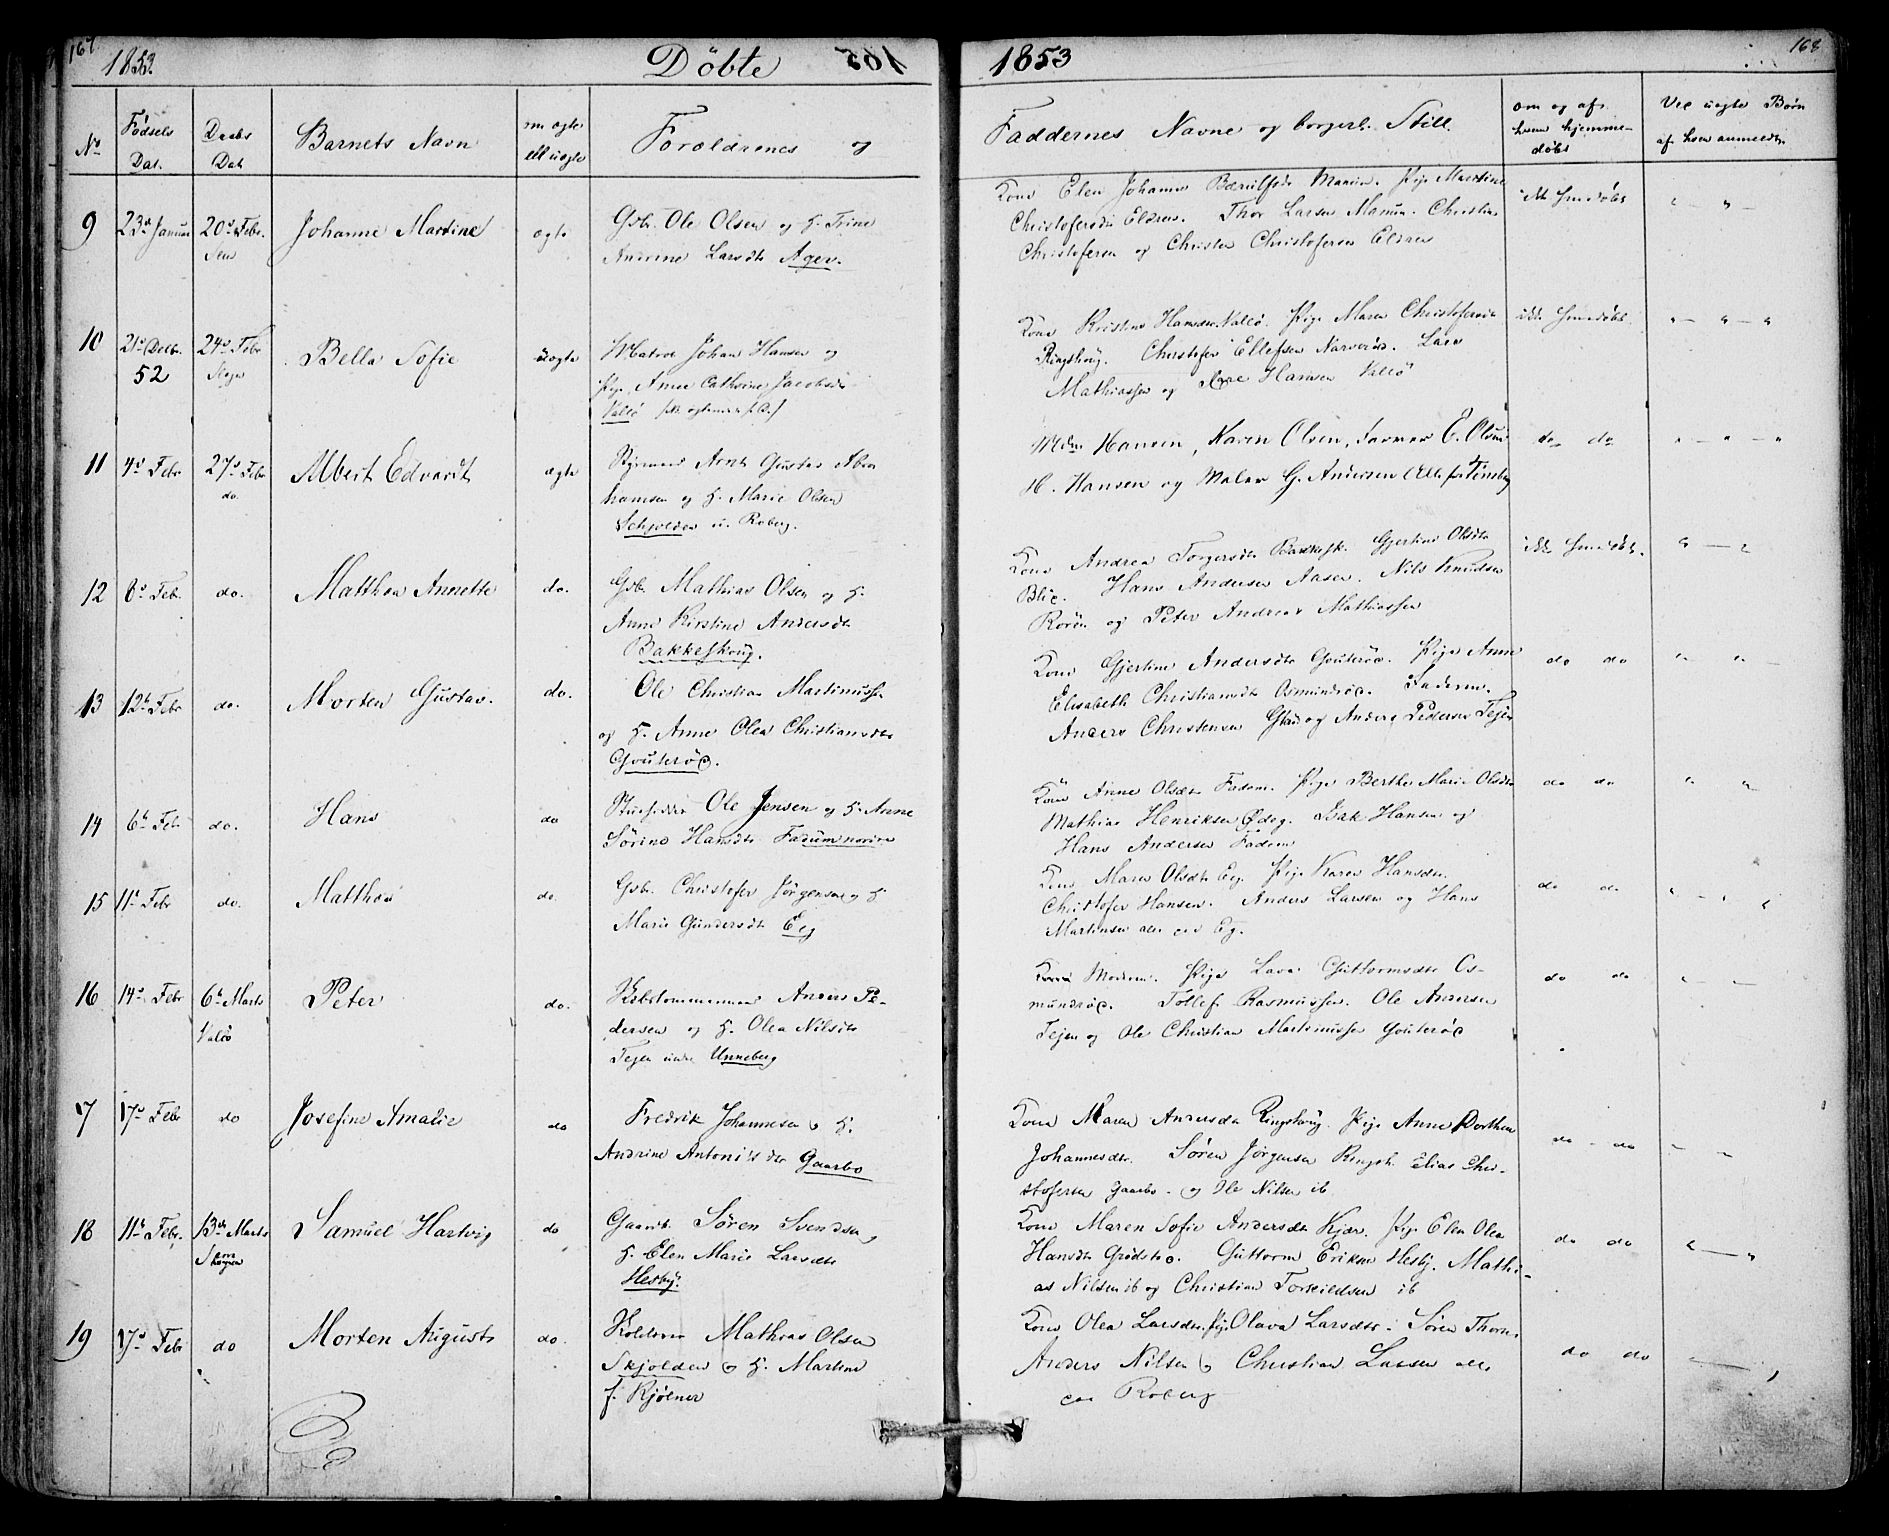 167.
1853.
Döbte
1853
168
No
Fødsels Dat.
Daabs Dat
Barnets Navn
om ægte ell uægte
Forældrenes og
Faddernes Navne og borgerl. Still.
om og af hvem hjemmedøbt
Ved uægte Børn af hvem anmeldt
9
23de Januar
20de Febr.
Johanne Martine
ægte
Gbr. Ole Olsen og H. Trine
Andrine Larsdtr Ager.
Kone Elen Johanne
Pige Martine
Christofersdtr Eldren. Thor Larsen Christian
Christofersen og Christen Christofersen Eldren
ikke hmedøbt
10
21de Decbr. 52
24de Febr
Slagen
Bella Sofie
uægte
Matros Johan Hansen og
Pige Anne Cathrine Jacobsdtr
Vallø
Kone Kristine Hansdtr Vallø. Pige Maren Christofersdtr
Ringshoug. Christofer Ellefsen Narverød. Lars
Mathiassen og Hansen Vallø
ikke hmedøbt
11
4de Febr
27de Febr
do.
Albert Edvardt
ægte
Arnt Gustav Abra
hamsen og H. Marie Olsen
Schjolden u. Roberg.
Mdm Hansen, Karen Olsen, Farmor E. Olsen
H. Hansen og Maler G. Andersen Alle fra Tønsberg
do do
12
8de Feb.
do.
Matthea Annette
do.
Gbr. Mathias Olsen og H.
Anne Kirstine Andersdtr
Bakkeskoug.
Kone Andrea Torgersdtr Bakkesk. Gjertine Olsdtr
Blix. Hans Andersen Aasen. Nils Knudsen
Roren og Peter Andreas Mathiassen
ikke hmedøbt.
13
12te Febr
do.
Morten Gustav.
do.
Ole Christian Martinussen
og H. Anne Olea Christiansdtr
Gouterød.
Kone Gjertine Andersdtr Gouterød. Pige Anne
Elisabeth Christiansdtr Osmundrød. Faderen.
Anders Christensen og Anders Pedersen Tejen
do do
14
6te Feb
do.
Hans
do
Ole Jensen og H. Anne
Sørine Hansdtr Fadumnordre
Kone Anne Olsdtr Fadom. Pige Berthe Marie Olsdtr
Mathias Henriksen Ødeg. Hansen og
Hans Andersen Fadom
do do
15
11te Febr
do.
Matthea
do.
Gbr. Christofer Jørgensen og H
Marie Gundersdtr Eeg
Kone Maren Olsdtr Eeg. Pige Karen Hansdtr.
Christofer Hansen. Anders Larsen og Hans
Martinsen alle paa Eg.
do do
16
14de Febr
6te Marts
Vallø
Peter
do.
Anders Pe-
dersen og H. Olea Nilsdtr
Tejen under Unneberg
Moderen. Pige Lava Guttormsdtr Os-
mundrød. Tollef Rasmussen. Ole Andersen
Tejen og Ole Christian Martinussen Gouterød
do do
17
17de Febr
do
Josefine Amalie
do
Fredrik Johannesen og H.
Andrine Antonisdtr Gaarbo
Kone Maren Andersdtr Ringshoug. Pige Anne Dorthea
Johannesdtr. Søren Jørgensen Ringsh. Elias Chri-
stofersen Gaarbo. og Ole Nilsen ib
do - do
18
11te Febr.
13de Marts
Sem
Samuel Hartvig
do
Gaardb. Søren Svendsen
H. Elen Marie Larsdtr
Hesby.
Kone Maren Sofie Andersdtr Kjær. Pige Elen Olea
Hansdtr Grødsted. Guttorm Eriksen Hesby. Mathi-
as Nilsen ib og Christian Torkildsen ib
do do
19
17de Febr
do
Morten August
do.
Mathias Olsen
Skjolden og H. Martine
f. Kjølner
Kone Olea Larsdtr. Pige Olava Larsdtr. Søren Thor
Anders Nilsen og Christian Larsen alle
paa Roberg
do do